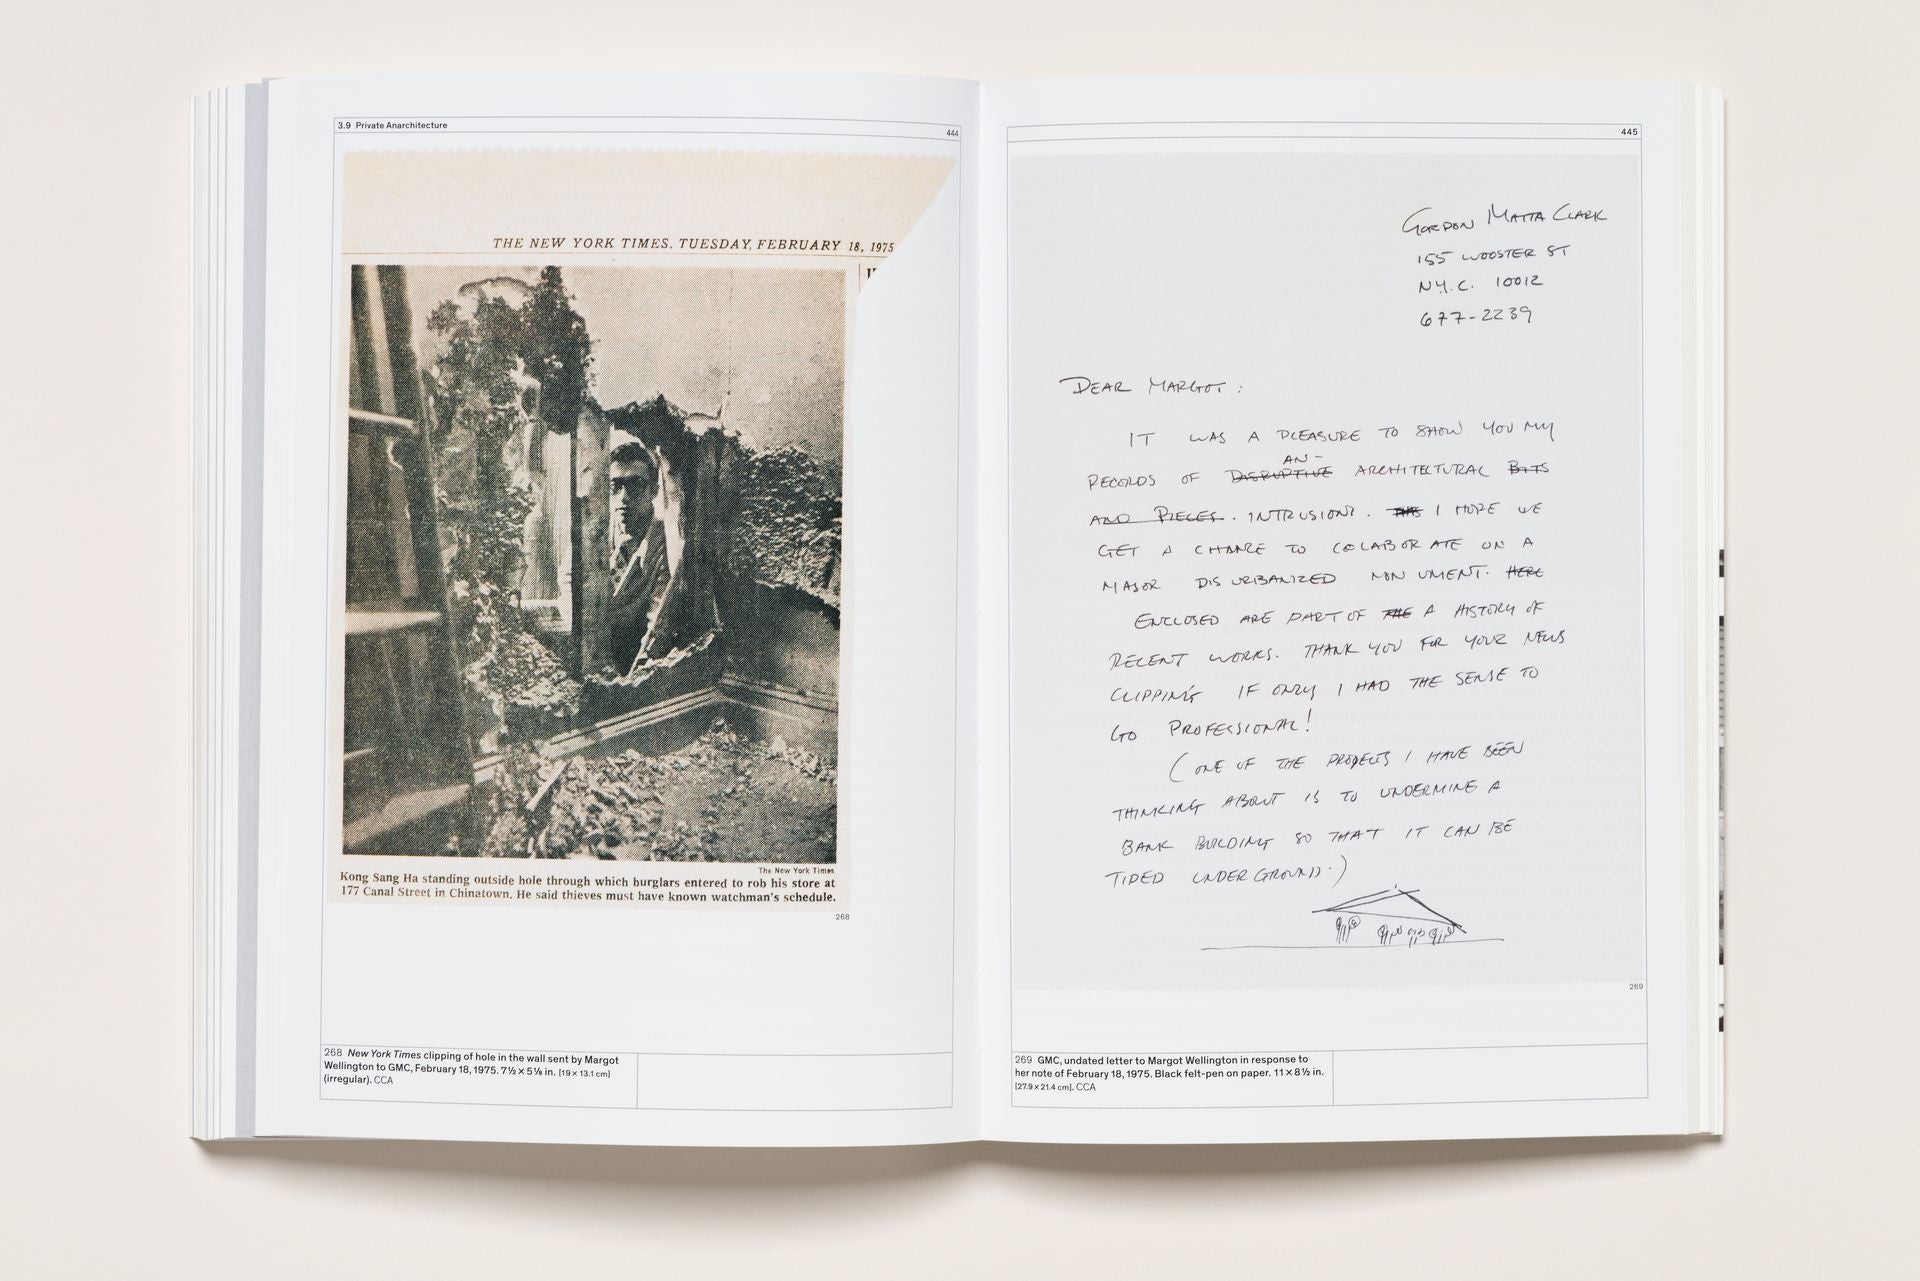 3.9 Private Anarchitecture
444
THE NEW YORK TIMES, TUESDAY, FEBRUARY 18, 1975
The New York Times
Kong Sang Ha standing outside hole through which burglars entered to rob his store at
177 Canal Street in Chinatown. He said thieves must have known watchman's schedule.
268
268 New York Times clipping of hole in the wall sent by Margot
Wellington to GMC, February 18, 1975. 7½ × 5⅛ in. [19 × 13.1 cm]
(irregular). CCA
445
GORDON MATTA CLARK
155 WOOSTER ST
N.Y.C. 10012
677-2239
DEAR MARGOT:
IT WAS A PLEASURE TO SHOW YOU MY
AN-
RECORDS OF DISRUPTIVE ARCHITECTURAL BITS
AND PIECES. INTRUSIONS. THIS I HOPE WE
GET A CHANCE TO COLABORATE ON A
MAJOR DISURBANIZED MONUMENT. HERE
ENCLOSED ARE PART OF THE A HISTORY OF
RECENT WORKS. THANK YOU FOR YOUR NEWS
CLIPPING IF ONLY I HAD THE SENSE TO
GO PROFESSIONAL!
(ONE OF THE PROJECTS I HAVE BEEN
THINKING ABOUT IS TO UNDERMINE A
BANK BUILDING SO THAT IT CAN BE
TIPED UNDERGROUND.)
269
269 GMC, undated letter to Margot Wellington in response to
her note of February 18, 1975. Black felt-pen on paper. 11 × 8½ in.
[27.9 × 21.4 cm]. CCA